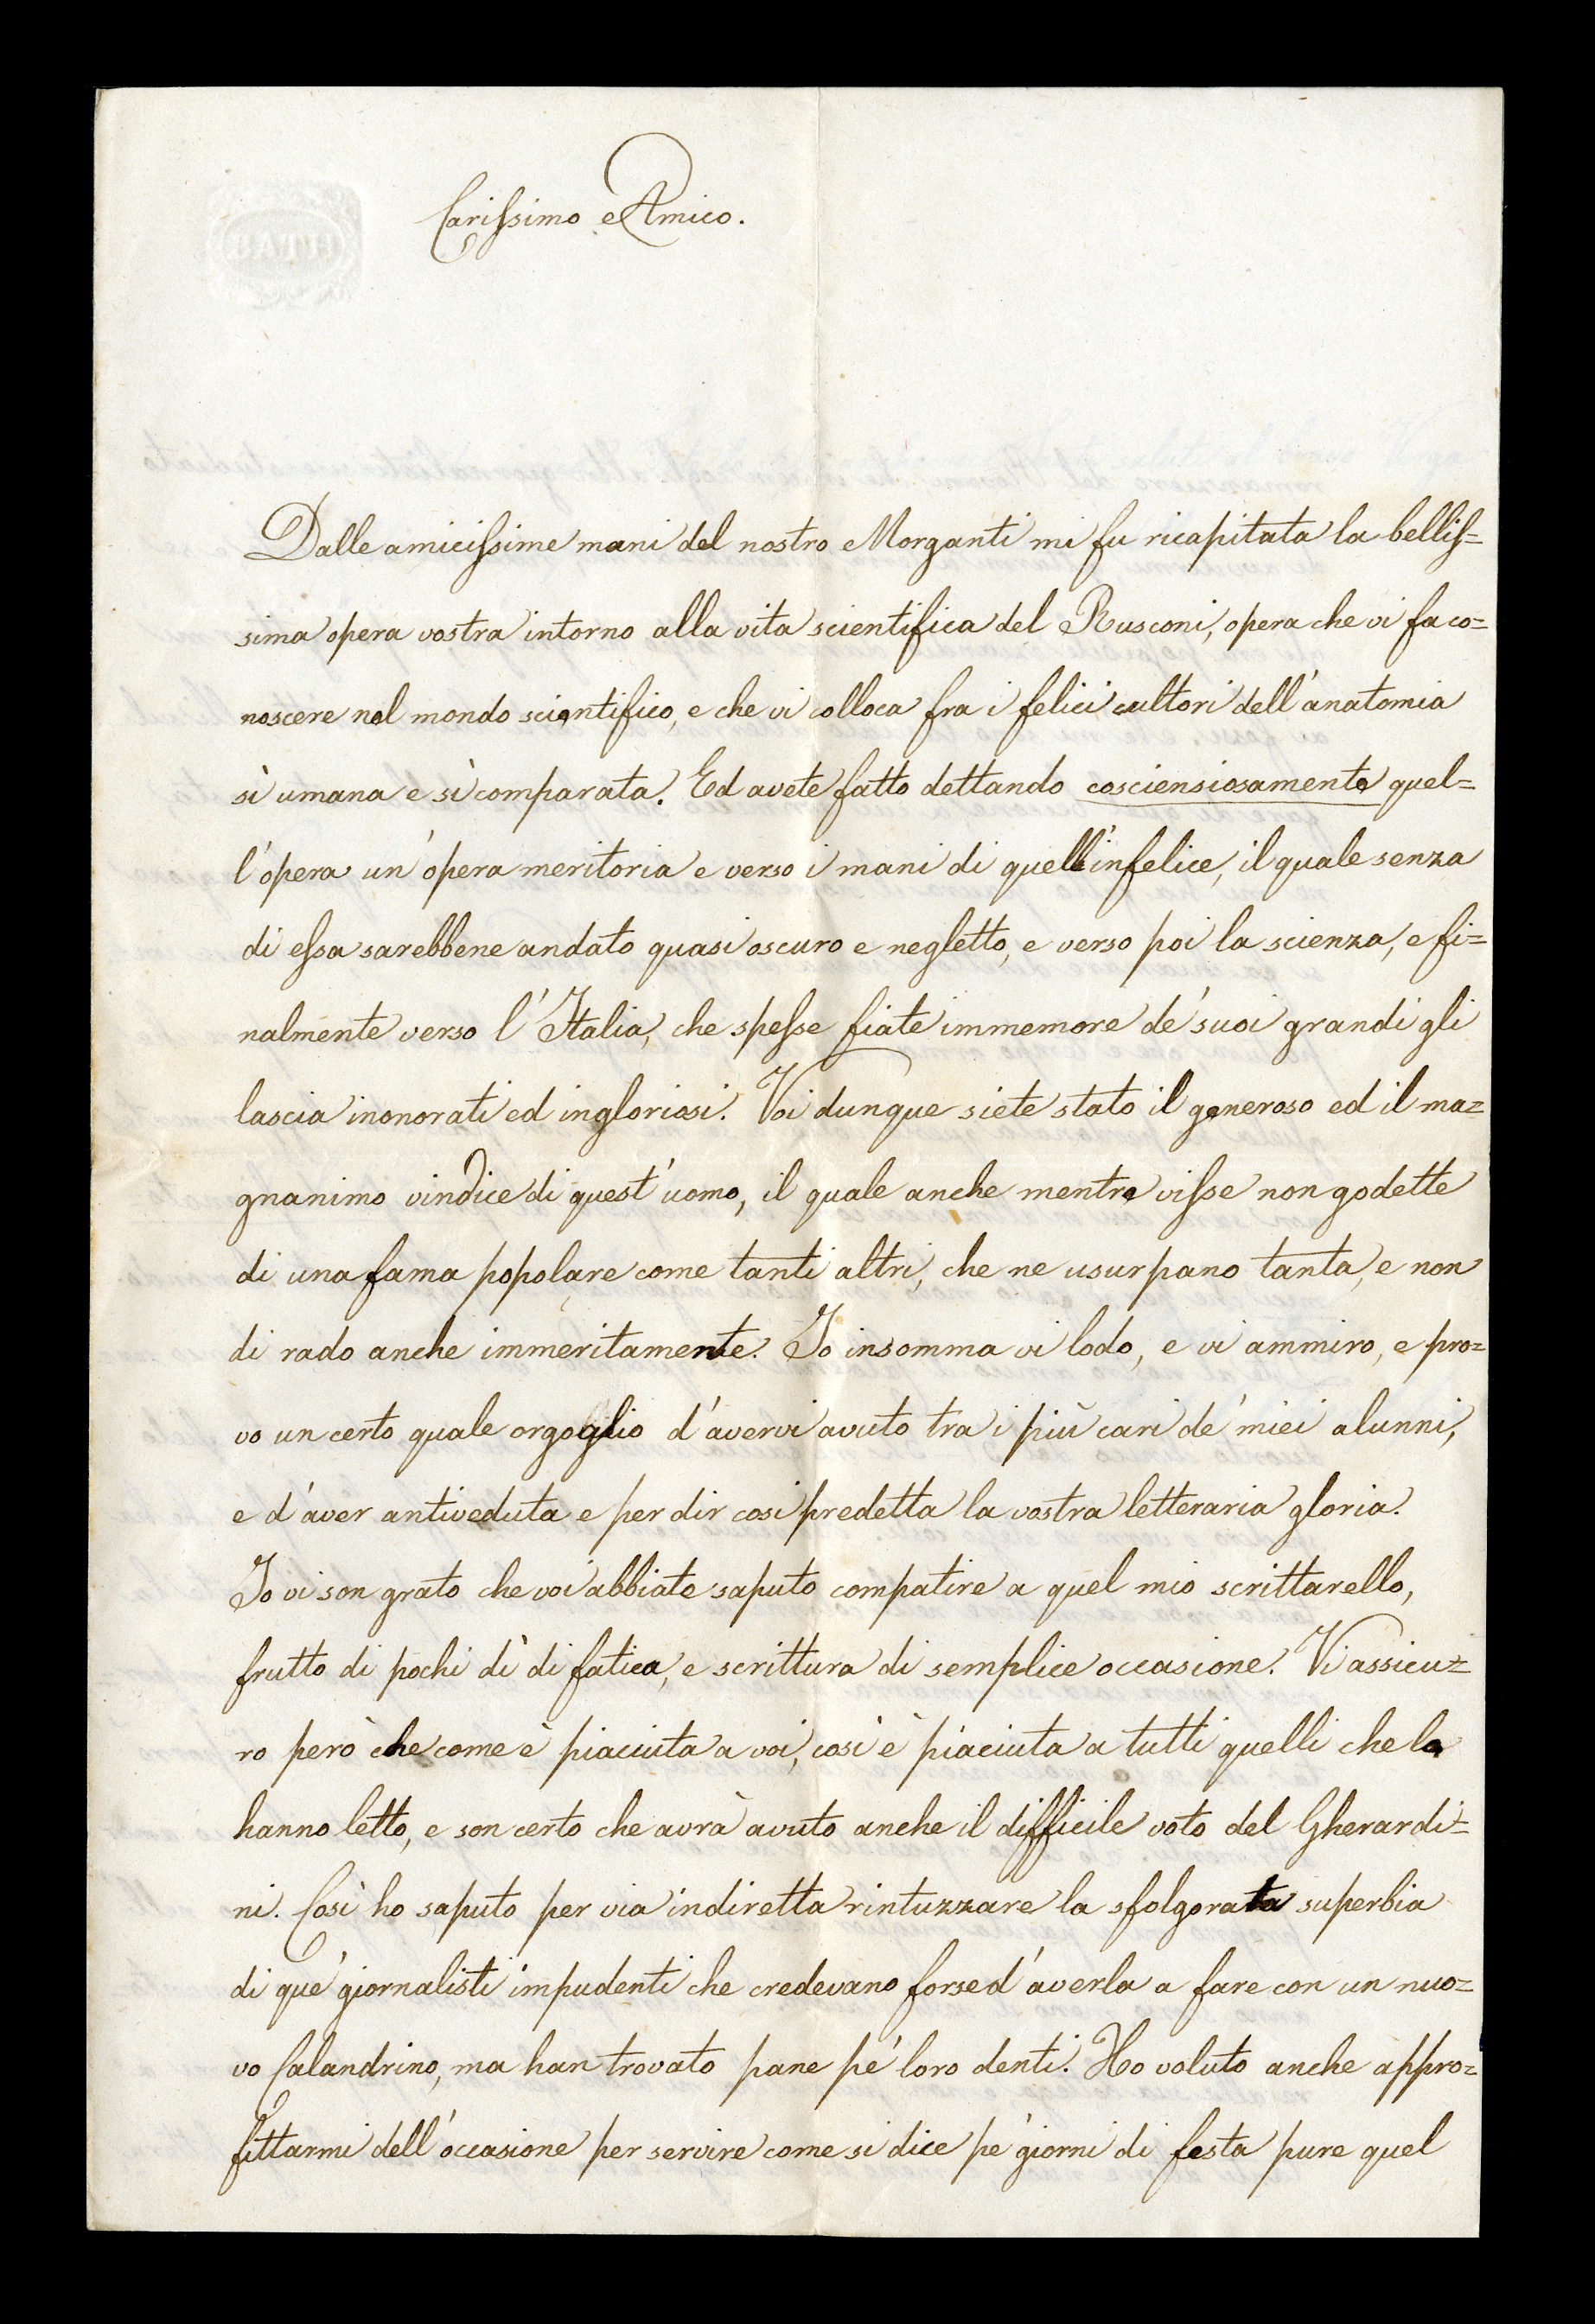 Carissimo Amico.
Dalle amicissime mani del nostro Morganti mi fu ricapitata la bellis=
sima opera vostra intorno alla vita scientifica del Rusconi, opera che vi fa co=
noscere nel mondo scientifico, e che vi colloca fra i felici cultori dell'anatomia
sì umana e sì comparata. Ed avete fatto dettando cosciensiosamente quel=
l'opera un'opera meritoria e verso i mani di quell'infelice, il quale senza
di essa sarebbene andato quasi oscuro e negletto, e verso poi la scienza, e fi=
nalmente verso l'Italia, che spesse fiate immemore de' suoi grandi gli
lascia inonorati ed ingloriosi. Voi dunque siete stato il generoso ed il ma=
gnanimo vindice di quest'uomo, il quale anche mentre visse non godette
di una fama popolare come tanti altri, che ne usurpano tanta, e non
di rado anche immeritamente. Io insomma vi lodo, e vi ammiro, e pro=
vo un certo quale orgoglio d'avervi avuto tra i più cari de' miei alunni,
e d'aver antiveduta e per dir così predetta la vostra letteraria gloria.
Io vi son grato che voi abbiate saputo compatire a quel mio scrittarello,
frutto di pochi dì di fatica, e scrittura di semplice occasione. Vi assicu=
ro però che come è piaciuta a voi, così è piaciuta a tutti quelli che la
hanno letto, e son certo che avrà avuto anche il difficile voto del Gherardi=
ni. Così ho saputo per via indiretta rintuzzare la sfolgorata superbia
di que' giornalisti impudenti che credevano forse d'averla a fare con un nuo=
vo Calandrino, ma han trovato pane pe' loro denti. Ho voluto anche appro=
fittarmi dell'occasione per servire come si dice pe' giorni di festa pure quel